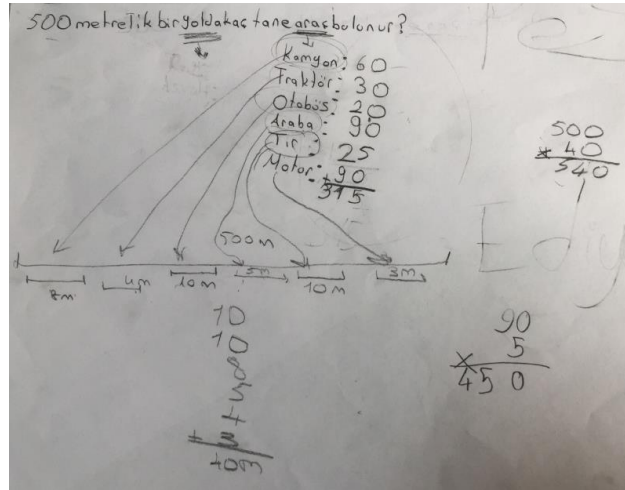 500 metrelik bir yoldakaç tane araç bulunur?
Kamyon: 60
Traktör: 30
Otobüs: 20
Araba: 90
Tır: 25
Motor: +90
315
500
x 40
540
500m
8m
4m
10m
5m
10m
3m
10
10
8
5
4
+ 3
40m
90
x 5
450